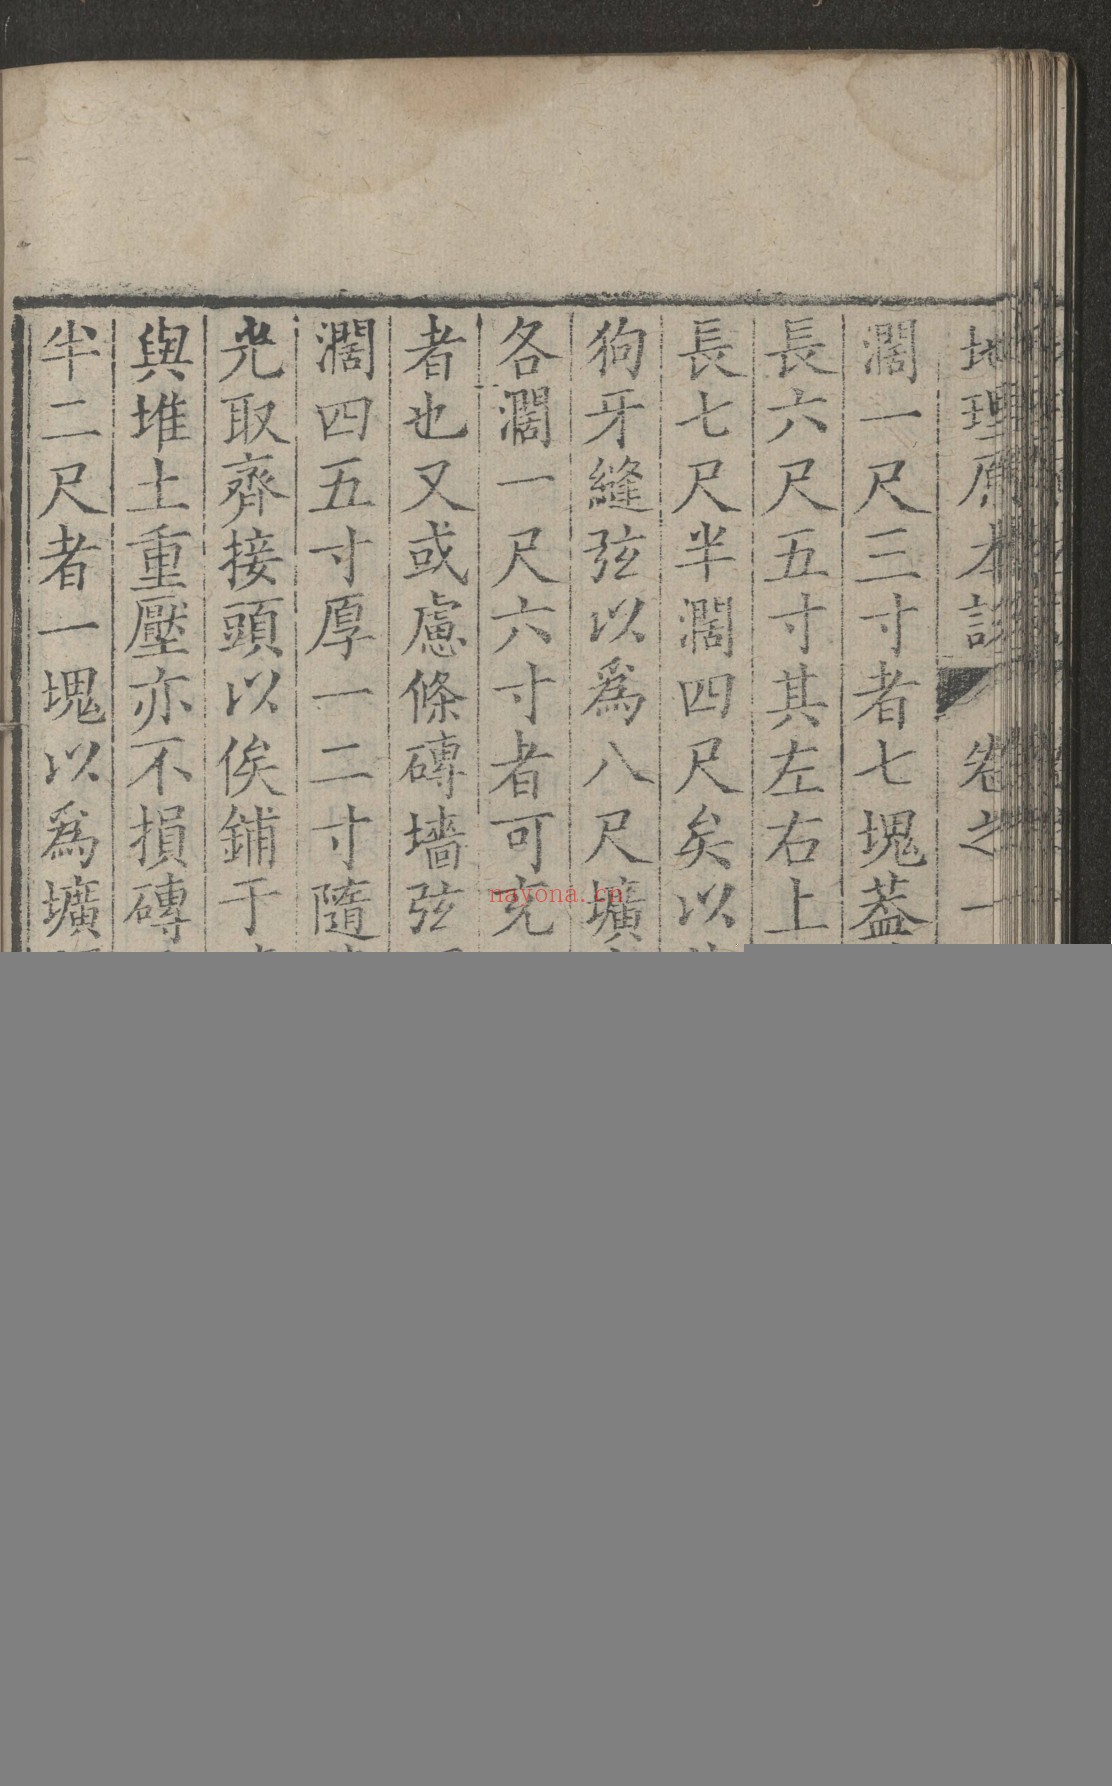 地理原本說 卷之一
濶一尺三寸者七塊蓋
長六尺五寸其左右上
長七尺半濶四尺矣以
狗牙縫弦以爲八尺壙
各濶一尺六寸者可克
者也又或慮條磚墻弦
濶四五寸厚一二寸隨
光取齊接頭以俟鋪于
與堆土重壓亦不損磚
半二尺者一塊以爲壙
nayona.cn